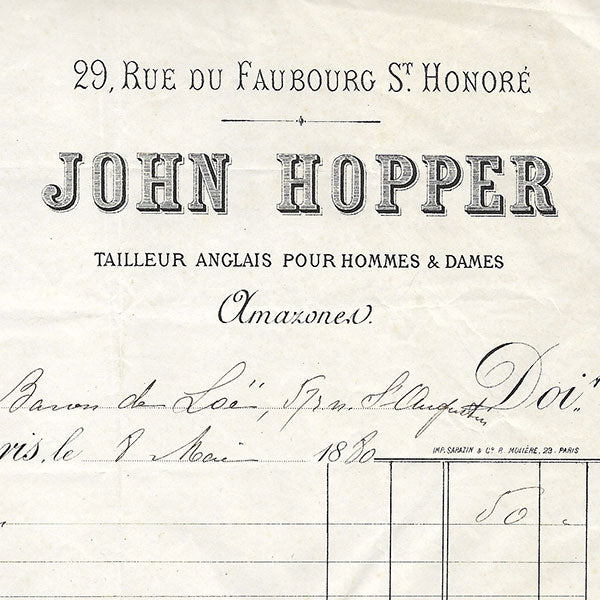 29, RUE DU FAUBOURG ST. HONORÉ
JOHN HOPPER
TAILLEUR ANGLAIS POUR HOMMES & DAMES
Amazones.
Baron de Loë, 57 r. St Augustin Doit
ris, le 8 Mai 1880
IMP. SARAZIN & Cie R. MOLIÈRE, 23. PARIS
50